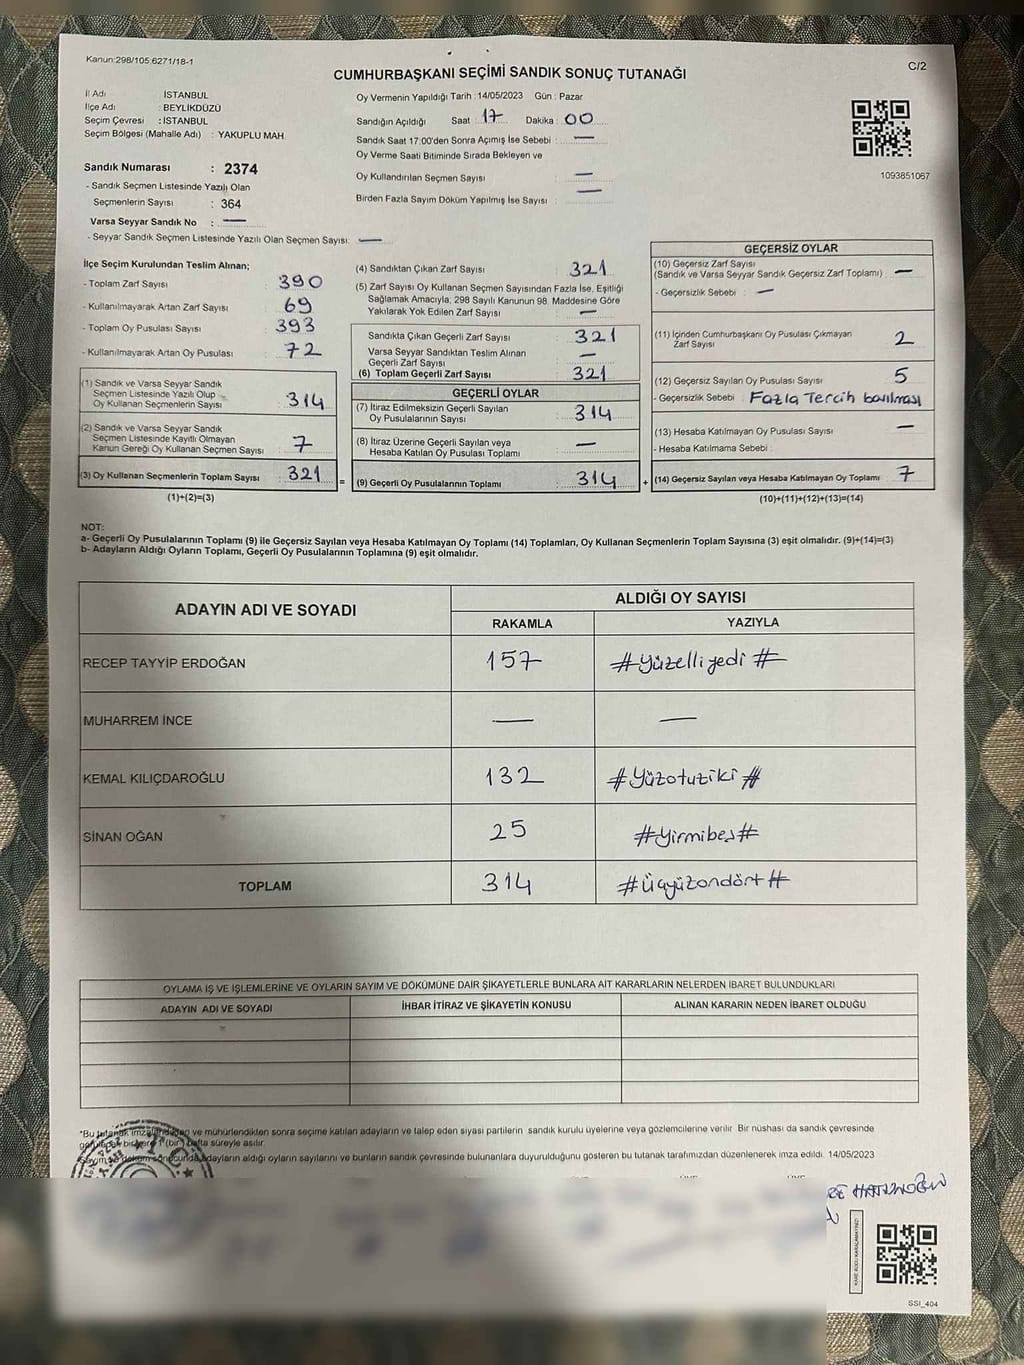 Kanun:298/105.6271/18-1
CUMHURBAŞKANI SEÇİMİ SANDIK SONUÇ TUTANAĞI
C/2
İl Adı İSTANBUL
İlçe Adı : BEYLİKDÜZÜ
Seçim Çevresi : İSTANBUL
Seçim Bölgesi (Mahalle Adı) : YAKUPLU MAH
Sandık Numarası : 2374
- Sandık Seçmen Listesinde Yazılı Olan
Seçmenlerin Sayısı : 364
Varsa Seyyar Sandık No : —
- Seyyar Sandık Seçmen Listesinde Yazılı Olan Seçmen Sayısı: —
Oy Vermenin Yapıldığı Tarih : 14/05/2023 Gün : Pazar
Sandığın Açıldığı Saat : 17 Dakika : 00
Sandık Saat 17:00'den Sonra Açımış İse Sebebi : —
Oy Verme Saati Bitiminde Sırada Bekleyen ve
Oy Kullandırılan Seçmen Sayısı —
Birden Fazla Sayım Döküm Yapılmış İse Sayısı : —
1093851067
İlçe Seçim Kurulundan Teslim Alınan;
- Toplam Zarf Sayısı : 390
- Kullanılmayarak Artan Zarf Sayısı : 69
- Toplam Oy Pusulası Sayısı : 393
- Kullanılmayarak Artan Oy Pusulası : 72
(1) Sandık ve Varsa Seyyar Sandık
Seçmen Listesinde Yazılı Olup
Oy Kullanan Seçmenlerin Sayısı : 314
(2) Sandık ve Varsa Seyyar Sandık
Seçmen Listesinde Kayıtlı Olmayan
Kanun Gereği Oy Kullanan Seçmen Sayısı : 7
(3) Oy Kullanan Seçmenlerin Toplam Sayısı : 321
(1)+(2)=(3)
(4) Sandıktan Çıkan Zarf Sayısı : 321
(5) Zarf Sayısı Oy Kullanan Seçmen Sayısından Fazla İse, Eşitliği
Sağlamak Amacıyla, 298 Sayılı Kanunun 98. Maddesine Göre
Yakılarak Yok Edilen Zarf Sayısı : —
Sandıkta Çıkan Geçerli Zarf Sayısı : 321
Varsa Seyyar Sandıktan Teslim Alınan
Geçerli Zarf Sayısı : —
(6) Toplam Geçerli Zarf Sayısı : 321
GEÇERLİ OYLAR
(7) İtiraz Edilmeksizin Geçerli Sayılan
Oy Pusulasının Sayısı : 314
(8) İtiraz Üzerine Geçerli Sayılan veya
Hesaba Katılan Oy Pusulası Toplamı : —
= (9) Geçerli Oy Pusulalarının Toplamı : 314 +
GEÇERSİZ OYLAR
(10) Geçersiz Zarf Sayısı
(Sandık ve Varsa Seyyar Sandık Geçersiz Zarf Toplamı) —
- Geçersizlik Sebebi : —
(11) İçinden Cumhurbaşkanı Oy Pusulası Çıkmayan
Zarf Sayısı 2
(12) Geçersiz Sayılan Oy Pusulası Sayısı 5
- Geçersizlik Sebebi : Fazla Tercih basılması
(13) Hesaba Katılmayan Oy Pusulası Sayısı —
- Hesaba Katılmama Sebebi :
(14) Geçersiz Sayılan veya Hesaba Katılmayan Oy Toplamı : 7
(10)+(11)+(12)+(13)=(14)
NOT:
a- Geçerli Oy Pusulalarının Toplamı (9) ile Geçersiz Sayılan veya Hesaba Katılmayan Oy Toplamı (14) Toplamları, Oy Kullanan Seçmenlerin Toplam Sayısına (3) eşit olmalıdır. (9)+(14)=(3)
b- Adayların Aldığı Oyların Toplamı, Geçerli Oy Pusulalarının Toplamına (9) eşit olmalıdır.
ADAYIN ADI VE SOYADI
ALDIĞI OY SAYISI
RAKAMLA YAZIYLA
RECEP TAYYİP ERDOĞAN 157 #Yüzelliyedi#
MUHARREM İNCE — —
KEMAL KILIÇDAROĞLU 132 #Yüzotuziki#
SİNAN OĞAN 25 #Yirmibeş#
TOPLAM 314 #Üçyüzondört#
OYLAMA İŞ VE İŞLEMLERİNE VE OYLARIN SAYIM VE DÖKÜMÜNE DAİR ŞİKAYETLERLE BUNLARA AİT KARARLARIN NELERDEN İBARET BULUNDUKLARI
ADAYIN ADI VE SOYADI İHBAR İTİRAZ VE ŞİKAYETİN KONUSU ALINAN KARARIN NEDEN İBARET OLDUĞU
*Bu tutanak imzalandıktan ve mühürlendikten sonra seçime katılan adayların ve talep eden siyasi partilerin sandık kurulu üyelerine veya gözlemcilerine verilir. Bir nüshası da sandık çevresinde
1 (bir) hafta süreyle asılır.
Sayım adayların aldığı oyların sayılarını ve bunların sandık çevresinde bulunanlara duyurulduğunu gösteren bu tutanak tarafımızdan düzenlenerek imza edildi. 14/05/2023
T.C.
SSİ_404